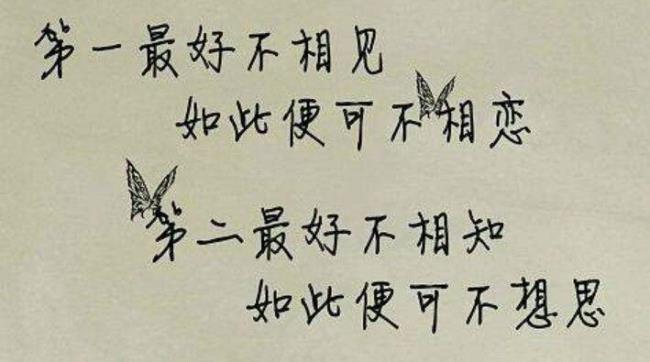 第一最好不相见
如此便可不相恋
第二最好不相知
如此便可不想思